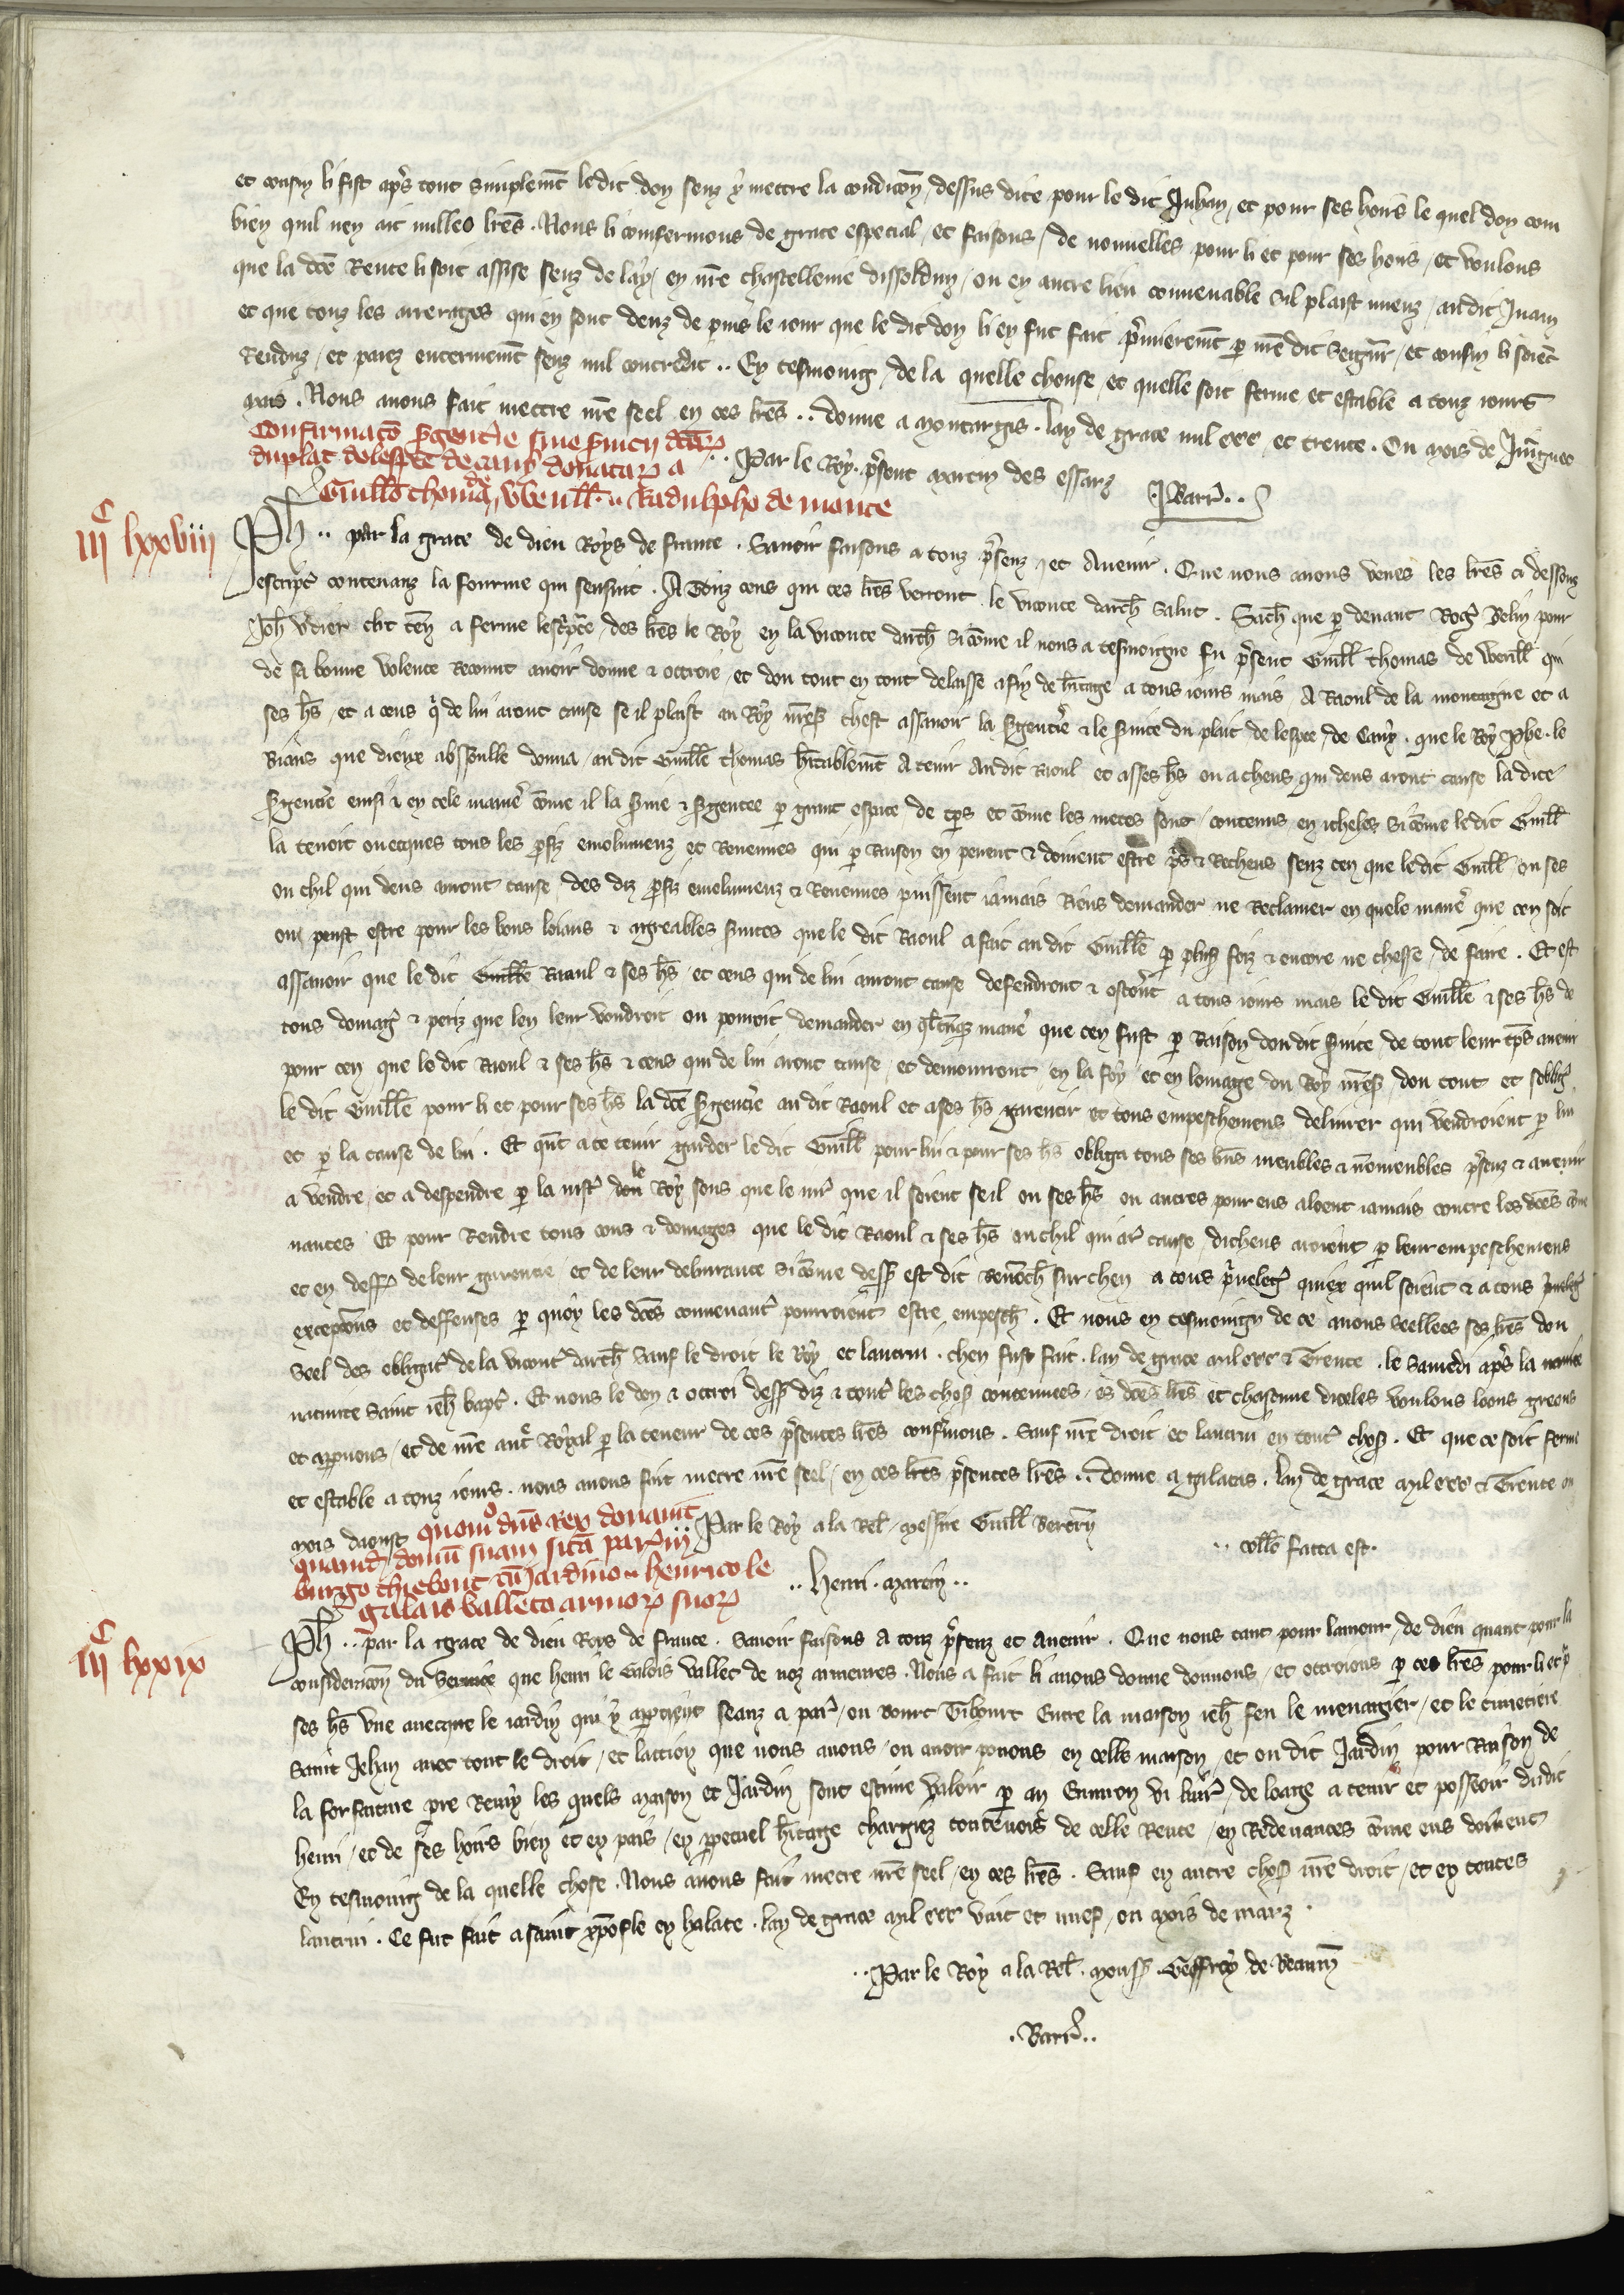 et consin li fist apres tout simplemēt ledit don senz y mettre la condicōn dessus dite pour le dit Juhan, et pour ses hoirs le quel don com
bien quil nen ait nulles lr̄es. Nous li confermons de grace especial, et faisons, de nouuelles pour li et pour ses hoirs, et voulons
que la dc̄e Rente li soit assise senz delay, en nr̄e chastellenie dissoldun, ou en autre lieu conuenable sil plaist mieuz, audit Juan
et que touz les arrerages qui en sont deuz depuis le iour que le dit don li en fut fait premierem̄t par nr̄e dit Seigneur, et consin li soiēt
Renduz, et paiez enterinemēt senz nul contredit .. En tesmoing, de la quelle chouse, et quelle soit ferme et estable a touz iours
mais. Nous auons fait mettre nr̄e seel en ces lr̄es .. donne a montargis. lan de grace mil ccc et trente. Ou mois de Juingnet
Confirmacō sergenterie siue seruicii
du plait de lespee de cany donatarum a
Guill̄o thome, Radulpho de monte
.. Par le Roy. present martin des essarz
Barr̄ ..
IIIᶜ lxxviii
Ph̄ .. par la grace de dieu Roys de france. Sauoir faisons a touz presenz, et Auenir. Que nous auons veues les lr̄es ci dessouz
escriptes contenanz la fourme qui sensuit. A Touz ceus qui ces lr̄es verront le viconte darch̄ salut. Sach̄ que par deuant Rog̃ Belin pour
Joh̄ vdier cl̄c ten̄ a ferme lescripture, des lr̄es le Roy en la viconte darch̄ si cōme il nous a tesmoigne fu present Guill̄ thomas de Veull̄ qui
de sa bonne volente Recounut auoir donne & ottroie, et don tout en tout delaisse afin de h̄itage a tous iours mais A Raoul de la montaigne et a
ses h̄s, et a ceus qui de lui aront cause se il plaist au Roy nr̄es chest assauoir la Sergenterie & le seruice du plait de lespee, de Cany. que le Roy Phe. le
Biaus que dieux absoulle donna, au dit Guill̄e thomas h̄itablemēt A tenir Audit Raoul et asses h̄s ou acheus qui deus aront cause la dite
sergenterie ensi & en cele manere cōme il la seruie & sergentee par grant espace de tp̄s et cōme les metes sont, contenus, en icheles, si cōme ledit Guill̄
la tenoit ouecques tous les profiz emolumenz et Reuenues qui par Raison en peuent & doiuent estre pris & Recheus senz cen que ledit Guill̄ ou ses
ou chil qui deus auront cause, des diz profiz emolumenz & Reuenues puissent iamais Riens demander ne Reclamer en quele manere que cen soit
ou puist estre pour les bons loiaus & agreables seruices que le dit Raoul a fait au dit Guill̄e par plus's foiz & encore ne chesse, de faire. Et est
assauoir que le dit Guill̄e Raoul & ses h̄s, et ceus qui de lui auront cause defendront & a tous iours mais le dit Guill̄e & ses h̄s de
tous domag̃ & periz que len leur voudroit ou pourroit demander en manere que cen fust par Raison dou dit seruice, de tout leur tp̄s auenir
pour cen, que le dit Raoul & ses h̄s & ceus qui de lui aront cause, et demourront, en la foy et en lomage du Roy nr̄es don tout et
le dit Guill̄e pour li et pour ses h̄s la dc̄e sergenterie au dit Raoul et ases h̄s garentir et tous empeschemens deliurer qui vendroient par lui
et par la cause de lui. Et quāt a ce tenir garder le dit Guill̄ pour lui & pour ses h̄s obliga tous ses biens meubles & nōmeubles presenz & auenir
a vendre, et a despendre par la iust̃ dou le Roy sous que le iur̃ que il soient se il ou ses h̄s ou autres pour eus aloent iamais contre les dc̄es conue
nances Et pour Rendre tous cous & domages que le dit Raoul & ses h̄s ou chil qui ar̃ cause, dicheus aroient par leur empeschemens
et en deff̃ de leur garentie et de leur deliurance si cōme dess̄ est dit Renōch̄ sur chen a tous preuelẽg quiex quil soient & a tous
exceptions et deffenses par quoy les dc̄es conuenant̃ pourroient estre empesch̄. Et nous en tesmoing de ce auons seellees ses lr̄es dou
seel des obligat̃ de la vicont̃ darch̄ sauf le droit le Roy et lautrui. chen fust fait. lan de grace mil ccc & Trente. le Samedi apres la
natiuite saint ieh̄ bapt̃. Et nous le don & ottroi dess̄ diz & tout̃ les chos̄ contenues, es dc̄es lr̄es et chascune diceles voulons loons greons
et approuons, et de nr̄e auct̃ Royal par la teneur de ces presentes lr̄es confermons. Sauf nr̄e droit et lautrui en tout̃ chos̄. Et que ce soit ferme
et estable a touz iours. nous auons fait metre nr̄e seel, en ces lr̄es presentes lr̄es .. donne a galatas. lan de grace mil ccc & Trente ou
mois daoust
.. Par le Roy a la Rel̄. messire Guill̄ Bertrā
.. coll̄o facta est.
.. Henri. martin ..
quomo dn̄s Rex donauit
quamd̄ domū suam sitā par̃ in
burgo thiebout cū iardino henrico le
galais vall̄eto armorum suorum
IIIᶜ lxxix
Ph̄ .. par la grace de dieu Roys de france. Sauoir faisons A touz presenz et Auenir. Que nous tant pour lamour, de dieu quant pour la
consideraciōn du Seruice que henri le Galois vallet de noz armeures. Nous a fait li auons donne donnons, et ottroions par ces lr̄es pour li et pr̃
ses h̄s vne auecque le iardin qui y appartient seanz a par̃, ou bourc Tibourt Entre la maison ieh̄ feu le menagier, et le cimetiere
saint Jehan auec tout le droit, et laccion que nous auons, ou auoir pouons en celle maison, et ou dit Jardin pour Raison de
la forfaiture pierre Remy les quels maison et Jardin sont estime valoir par an Enuiron vi liur̃, de loage a tenir et posseoir dudit
henri, et de ses hoirs bien et en pais, en perpetuel h̄itage chargiez toutesuois de celle Rente, en Redeuances cōme eus doiuent
En tesmoing de la quelle chose. Nous auons fait metre nr̄e seel, en ces lr̄es. Sauf en autre chos̄ nr̄e droit, et en toutes
lautrui. Ce fut fait a saint xp̄ofle en halate. lan de grace mil ccc vint et nuef, ou mois de marz.
.. Par le Roy a la Rel̄. mons̄. Geffroy de Beaum̄
. Barr̄ ..